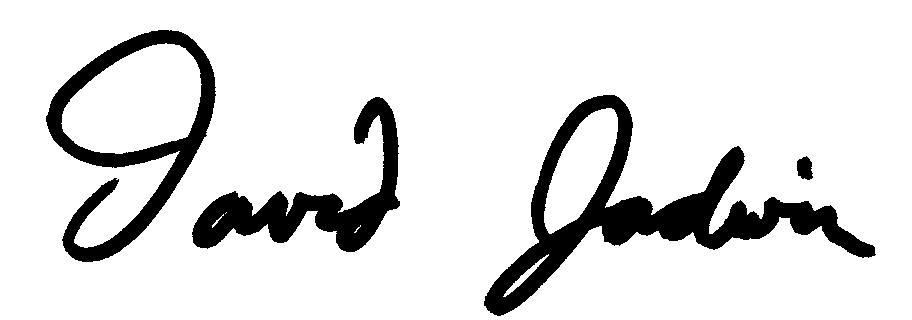 David Jadwin